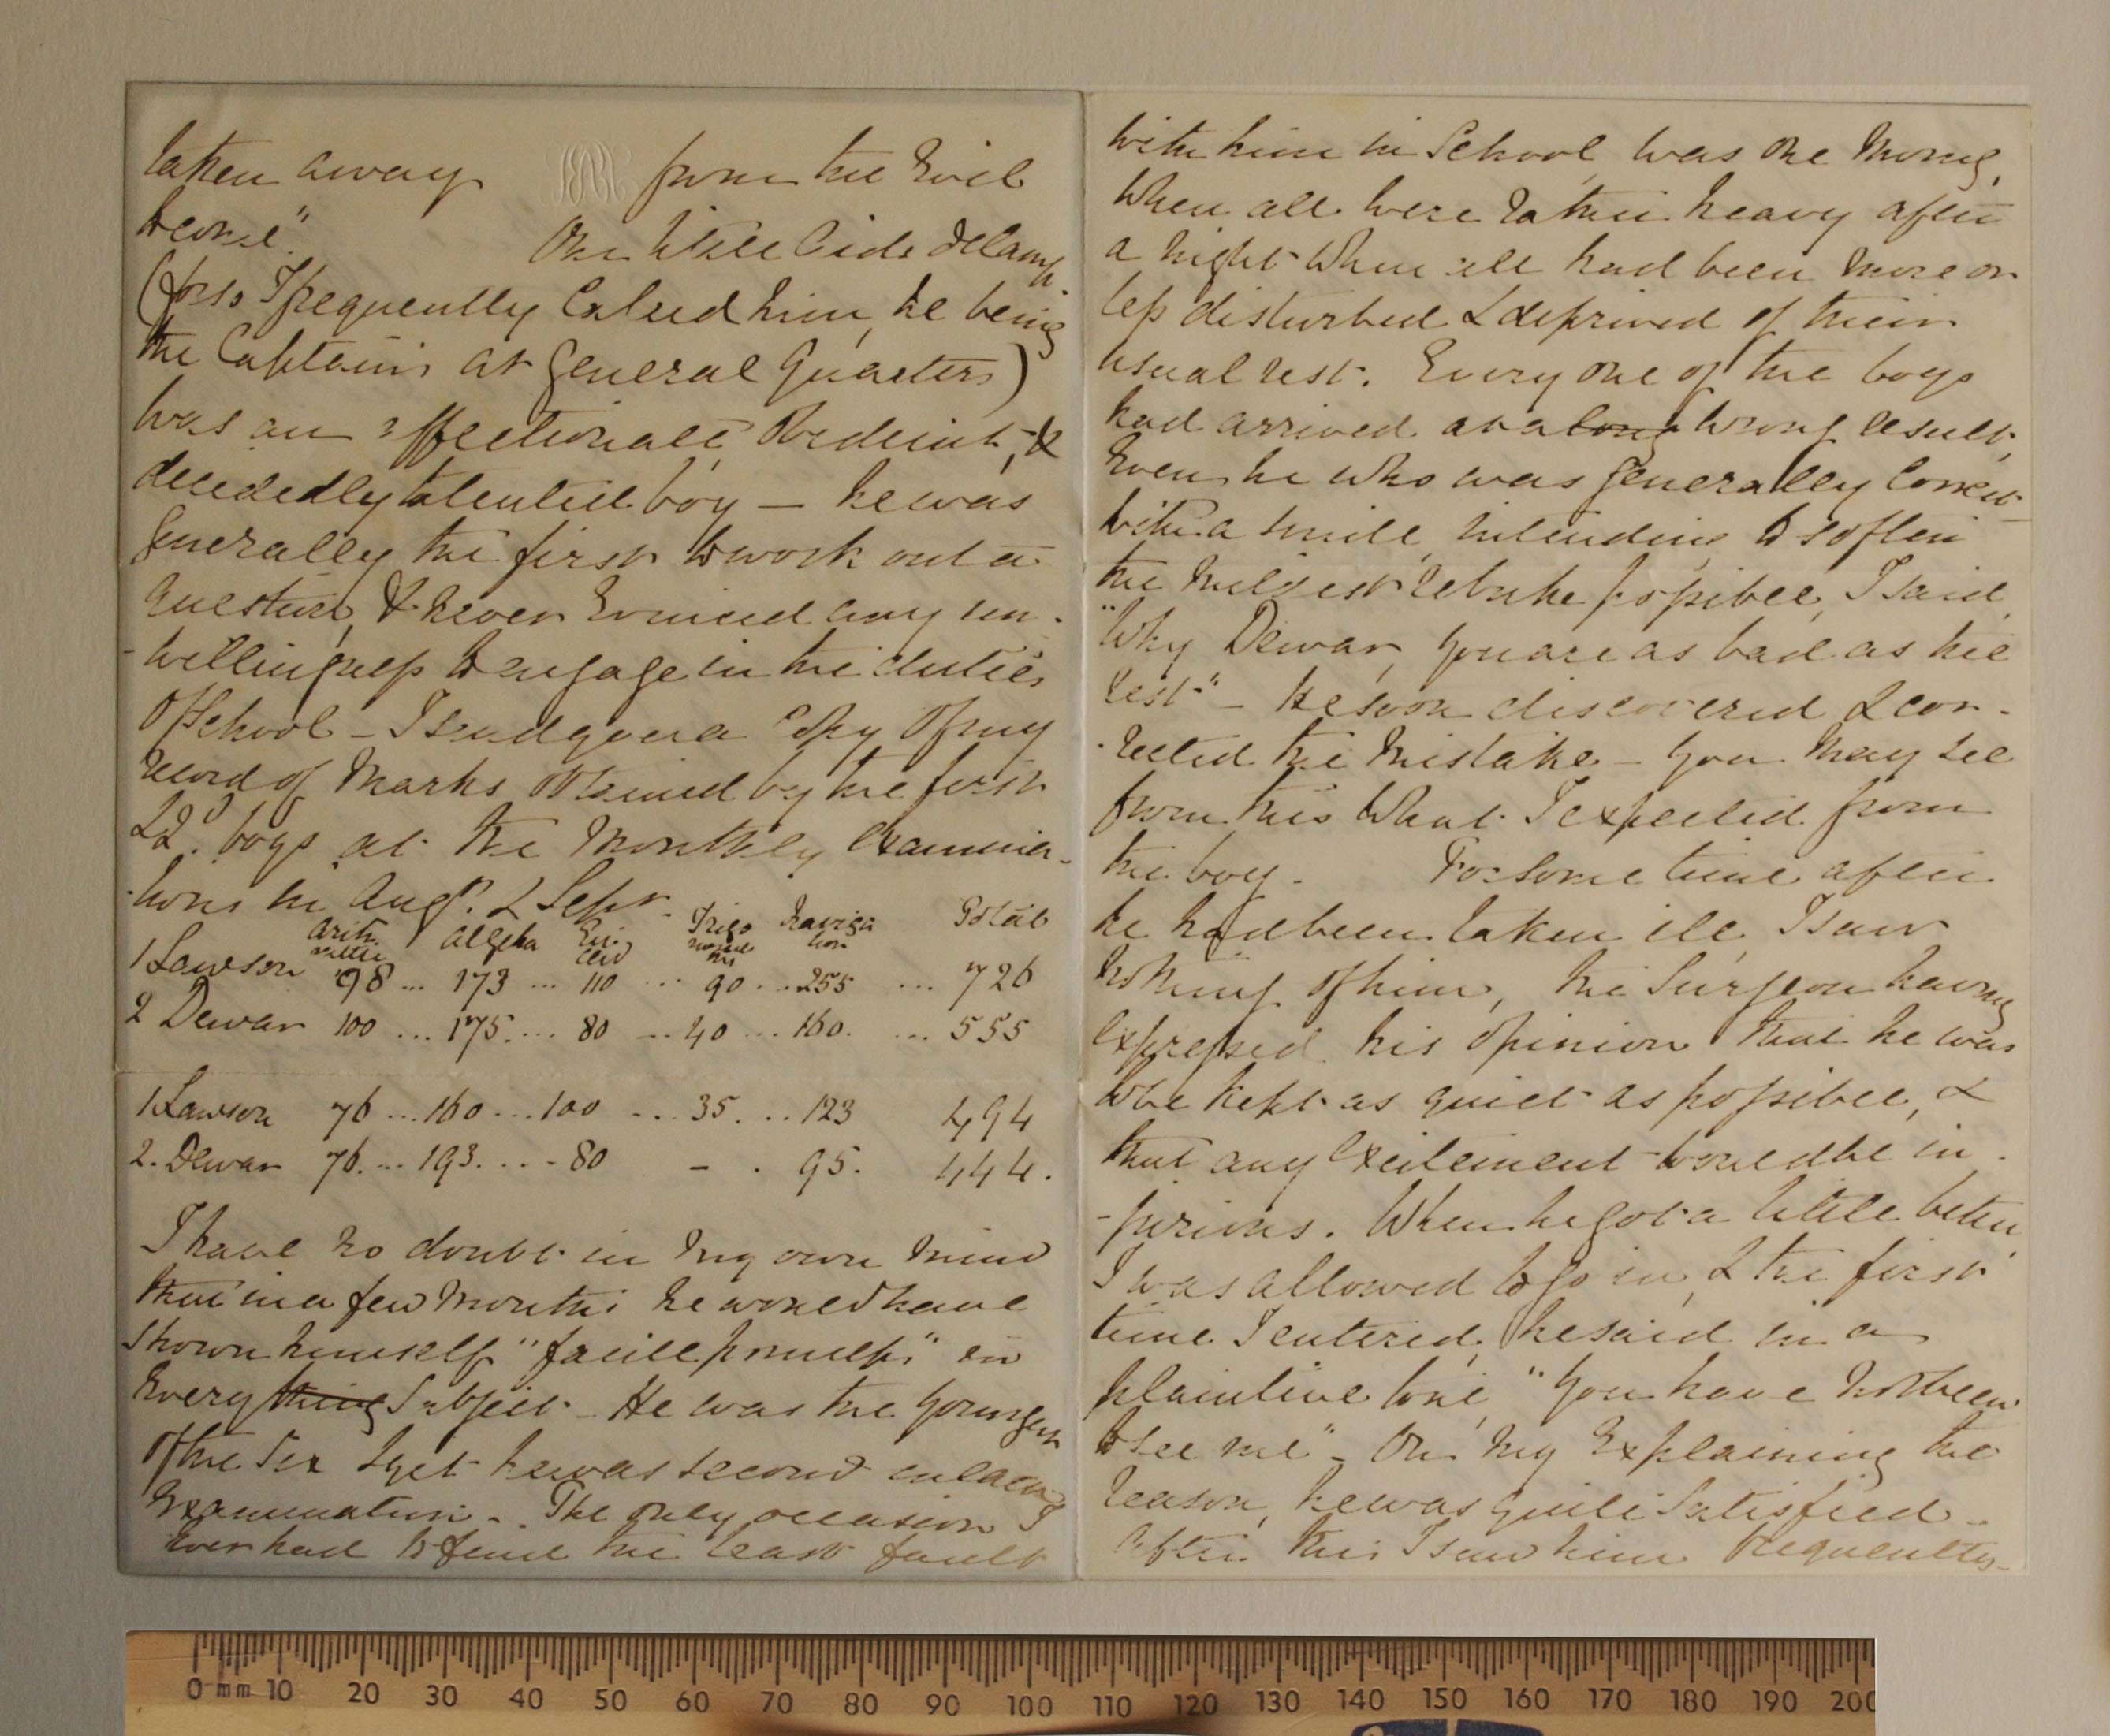 taken away from the Evil
to come"
Our little Aide de Camp
(for so I frequently called him, he being
the Captain's at General Quarters)
was an affectionate, obedient, &
decidedly talented boy — he was
generally the first to work out a
question, & never evinced any un-
-willingness to engage in the duties
of School — I send you a Copy of my
record of Marks obtained by the first
2 boys at the Monthly Examina-
-tions in Augt. & Sept.
Arith
metic Algebra Eu
clid Trigo
nome
try Naviga
tion Total
1 Lawson 98 ... 173 ... 110 ... 90 ... 255 ... 726
2 Dewar 100 ... 175 ... 80 ... 40 ... 160. ... 555
1 Lawson 76 ... 160 ... 100 ... 35. ... 123 494
2. Dewar 76. ... 193. ... 80 - . 95. 444.
I have no doubt in my own mind
that in a few months he would have
shown himself "facile princeps" in
every thing Subject - He was the youngest
of the Six & yet he was second in each
Examination - The only occasion I
ever had to find the least fault
with him in School, was one morng,
when all were rather heavy after
a night when all had been more or
less disturbed & deprived of their
usual rest. Every one of the boys
had arrived at a long wrong result,
Even he who was generally correct
with a smile, intending to soften
the mildest rebuke possible, I said,
"Why Dewar, you are as bad as the
rest" - He soon discovered & cor-
-rected the mistake - You may see
from this what I expected from
the boy. For some time after
he had been taken ill, I saw
nothing of him, the Surgeon having
expressed his opinion that he was
to be kept as quiet as possible, &
that any excitement would be in-
-jurious. When he got a little better,
I was allowed to go in, & the first
time I entered, he said in a
plaintive tone, "You have not been
to see me" - On my explaining the
reason, he was quite satisfied -
After this I saw him frequently -
0 mm 10 20 30 40 50 60 70 80 90 100 110 120 130 140 150 160 170 180 190 200